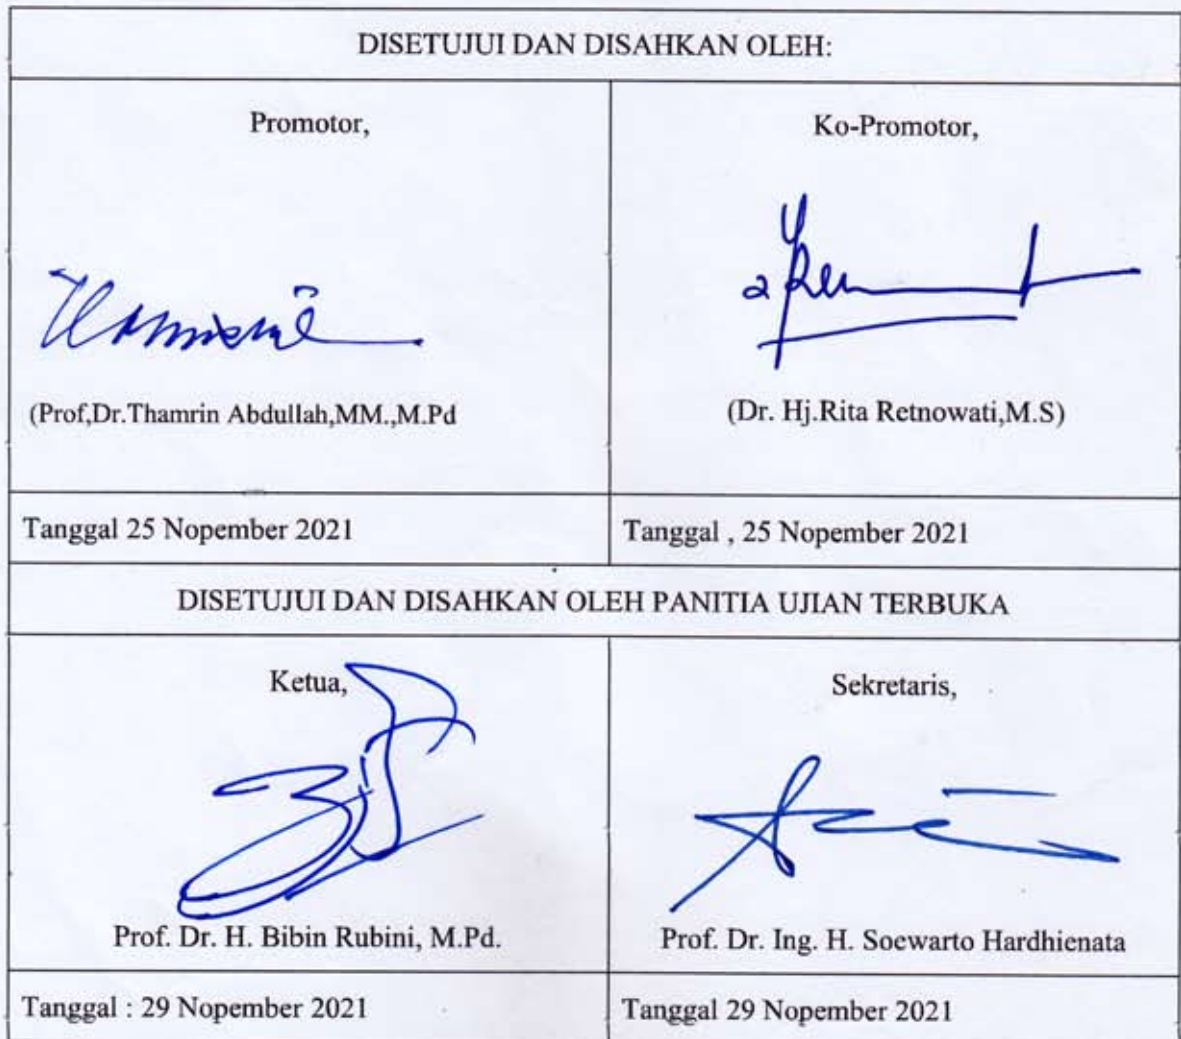 DISETUJUI DAN DISAHKAN OLEH:
Promotor,
(Prof,Dr.Thamrin Abdullah,MM.,M.Pd
Tanggal 25 Nopember 2021
Ko-Promotor,
(Dr. Hj.Rita Retnowati,M.S)
Tanggal , 25 Nopember 2021
DISETUJUI DAN DISAHKAN OLEH PANITIA UJIAN TERBUKA
Ketua,
Prof. Dr. H. Bibin Rubini, M.Pd.
Tanggal : 29 Nopember 2021
Sekretaris,
Prof. Dr. Ing. H. Soewarto Hardhienata
Tanggal 29 Nopember 2021